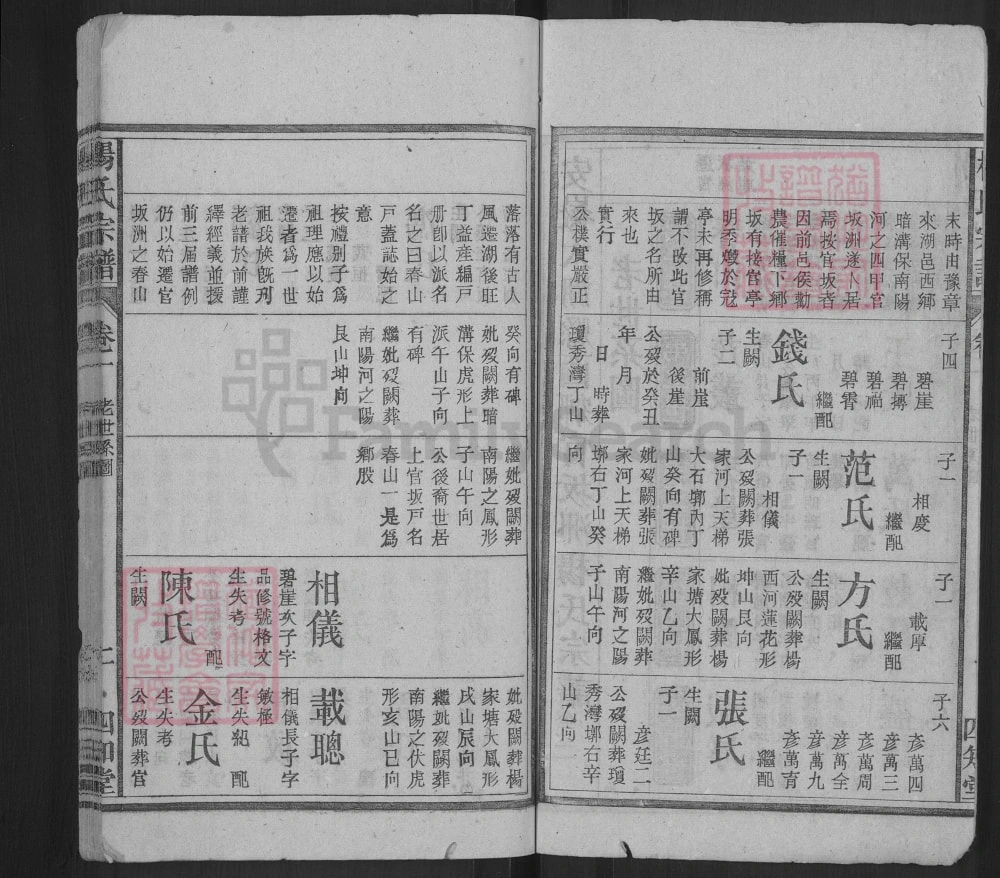 末時由豫章
來湖邑西鄉
暗溝保南陽
河之四甲官
坂洲遂卜居
焉按官坂者
因前邑侯勸
農催糧下鄉
坂有接官亭
明季燬於寇
亭未再修稱
謂不改此官
坂之名所由
來也
實行
公樸實嚴正
子四
碧崖
碧摶
碧福
碧霄
繼配
錢氏
生闕
子二
前崖
後崖
公歿於癸丑
年 月
日 時葬
瓊秀灣丁山
子一
相慶
繼配
范氏
生闕
子一
相儀
公歿闕葬張
家河上天梯
大石塚內丁
山癸向有碑
妣歿闕葬張
家河上天梯
塚右丁山癸
向
子一
載厚
繼配
方氏
生闕
公歿闕葬楊
西河蓮花形
坤山艮向
妣歿闕葬楊
家塘大鳳形
辛山乙向
繼妣歿闕葬
南陽河之陽
子山午向
子六
彥萬四
彥萬三
彥萬周
彥萬全
彥萬九
彥萬育
繼配
張氏
生闕
子一
彥廷二
公歿闕葬瓊
秀灣塚右辛
山乙向
四知堂
落落有古人
風遷湖後旺
丁益產編戸
册卽以派名
名之曰春山
戸蓋誌始之
意
按禮別子爲
祖理應以始
遷者爲一世
祖我族旣刋
老譜於前謹
繹經義並援
前三屆譜例
仍以始遷官
坂洲之春山
癸向有碑
妣歿闕葬暗
溝保虎形上
派午山子向
有碑
繼妣歿闕葬
南陽河之陽
艮山坤向
繼妣歿闕葬
南陽之鳳形
子山午向
公後裔世居
上官坂戸名
春山一是爲
鄉股
相儀
碧崖次子字
品修號格文
生失考
配
陳氏
生闕
妣歿闕葬楊
家塘大鳳形
戌山辰向
繼妣歿闕葬
南陽之伏虎
形亥山巳向
載聰
相儀長子字
敏極
生失紀
配
金氏
生失考
公歿闕葬官
楊氏宗譜
卷二
老世系圖
二
四知堂